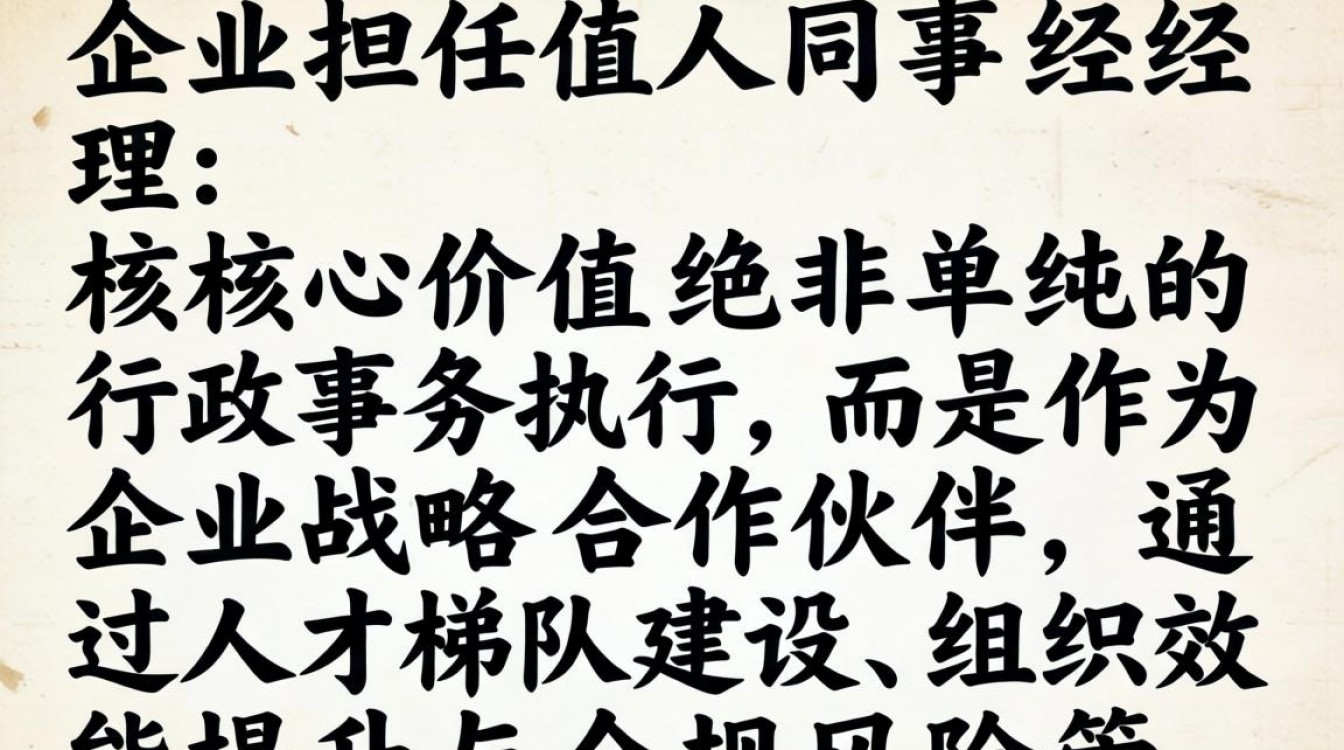 企业担任值人同事经经
理：
核核心价值绝非单纯的
行政事务执行，而是作为
企业战略合作伙伴，通
过人才梯队建设、组织效
能提升与合规风险管